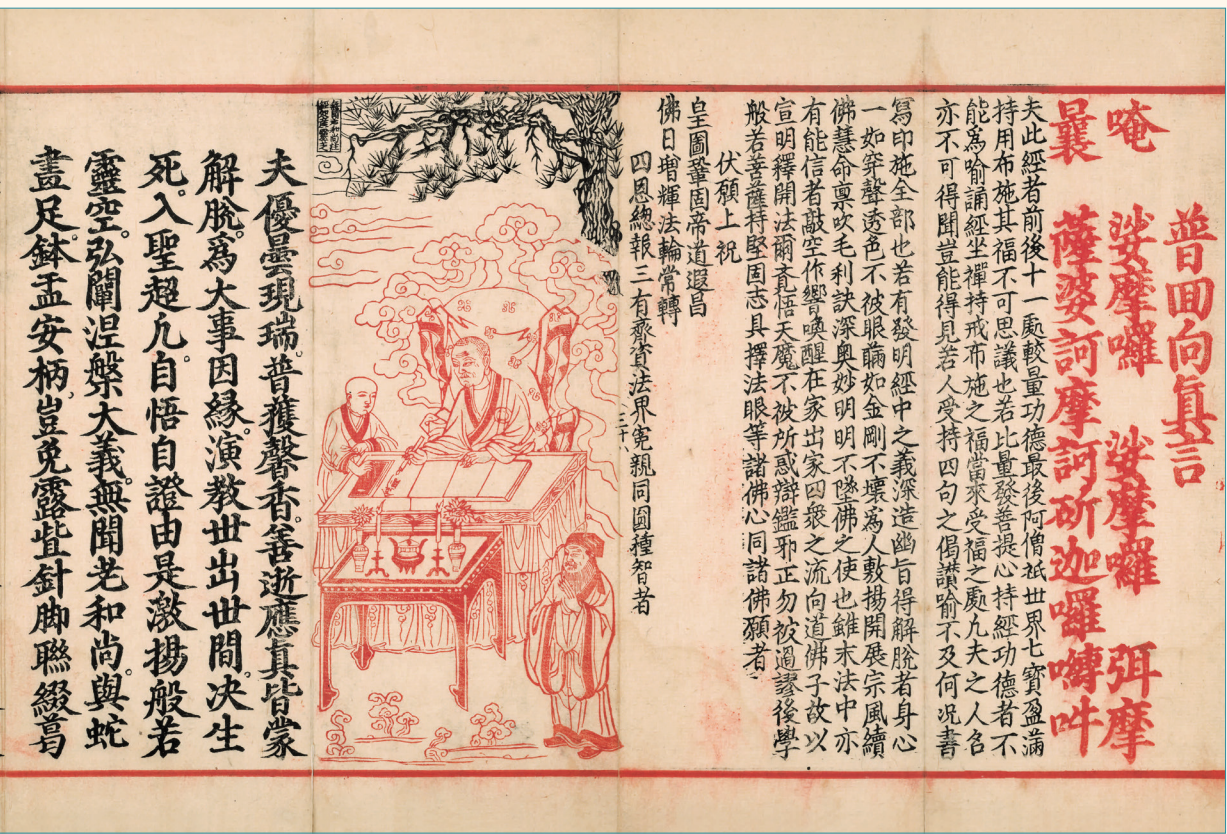 普回向真言
唵 娑摩囉 娑摩囉 弭摩
曩 薩婆訶摩訶斫迦囉嚩吽
夫此經者前後十一處較量功德最後阿僧祇世界七寶盈滿
持用布施其福不可思議也若比量發菩提心持經功德者不
能爲喻誦經坐禪持戒布施之福當來受福之處凡夫之人名
亦不可得聞豈能得見若人受持四句之偈讚喻不及何況書
寫印施全部也若有發明經中之義深造幽旨得解脫者身心
一如穿聲透色不被眼瞞如金剛不壞爲人敷揚開展宗風續
佛慧命禀吹毛利訣深奥妙明明不墜佛之使也雖末法中亦
有能信者敲空作響喚醒在家出家四衆之流向道佛子故以
宣明釋開法爾斉悟天魔不被所惑辯鑑邪正勿被過謬後學
般若菩薩持堅固志具擇法眼等諸佛心同諸佛願者
伏願上祝
皇圖鞏固帝道遐昌
佛日增輝法輪常轉
四恩總報三有齊資法界寃親同圓種智者
夫優曇現瑞。普獲馨香。善逝應真皆蒙
解脫。爲大事因緣。演教世出世間。决生
死。入聖超凡。自悟自證由是激揚般若
靈空。弘闡涅槃大義。無聞老和尚。與蛇
畫足。鉢盂安柄。豈免露呰針脚聯綴葛